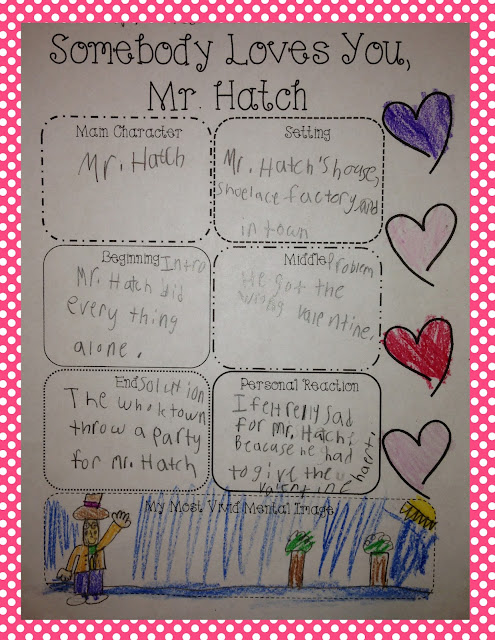 Somebody Loves You,
Mr. Hatch
Main Character
Mr. Hatch
Setting
Mr. Hatch's house,
shoelace factory, and
in town
Beginning Intro
Mr. Hatch did
every thing
alone.
Middle Problem
He got the
wrong valentine.
End Solution
The whole town
throw a party
for Mr. Hatch
Personal Reaction
I felt relly sad
for Mr. Hatch,
Beacause he had
to give the
valentine
haert.
My Most Vivid Mental Image